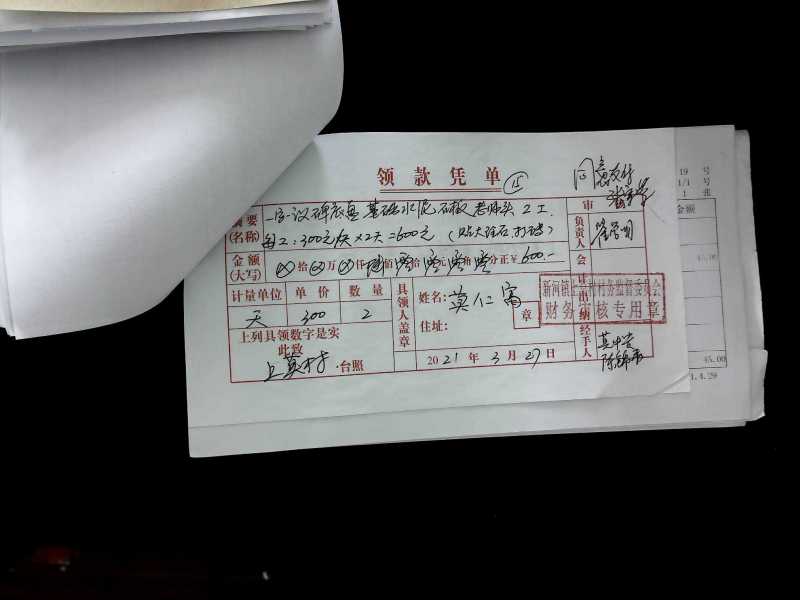 领款凭单 ⑮
同意支付
摘要
(名称)
一事一议碑底盘基础水泥石板 老师头 2工
每工:300元/天×2天=600元(贴大理石.打磚)
金额
(大写)
拾 万 仟 陆 佰 零 拾 零 元 零 角 零 分正 ¥ 600.-
计量单位 单价 数量
天 300 2
上列具领数字是实
此致
上莫村 台照
具领人盖章
姓名: 莫仁富
章
住址:
2021年3月27日
审
负责人
会
计
出
纳
经手人
陈锦
新河镇上莫村村务监督委员会
财务审核专用章
19 号
1/1 号
1 张
金额
45.00
45.00
4.29